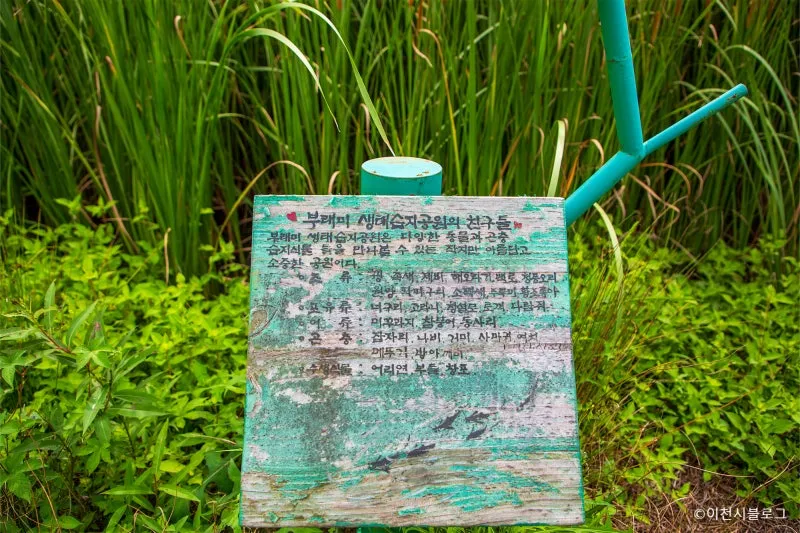 부래미 생태습지공원의 친구들
부래미 생태습지공원은 다양한 동물과 곤충
습지식물 등을 만나볼 수 있는 작지만 아름답고
소중한 공원이다.
조 류 : 꿩 족새 제비 해오라기 백로 청둥오리
원앙 딱따구리 소쩍새
포유류 : 너구리 고라니 청설모 토끼 다람쥐
어 류 : 미꾸라지 참붕어 동사리
곤 충 : 잠자리 나비 거미 사마귀
메뚜기 방아깨비
수생식물 : 어리연 부들 창포
©이천시블로그